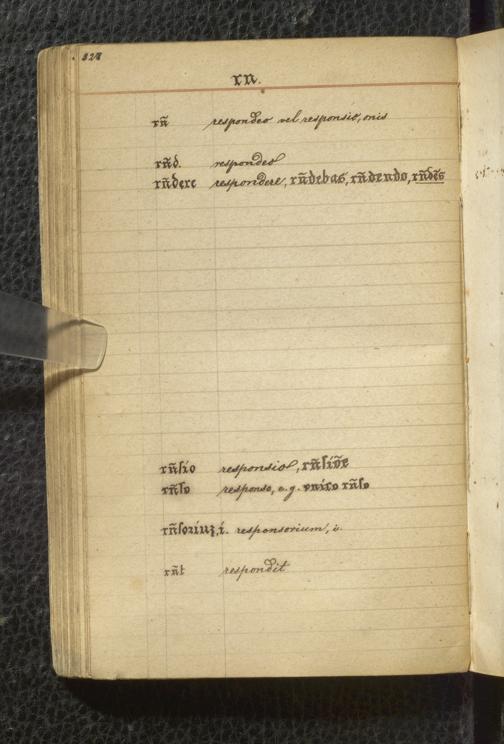 328
rn.
rn̄ respondeo vel responsio, onis
rn̄d. respondeo
rn̄dere respondere, rn̄debas, rn̄dendo, rn̄dēs
rn̄sio responsio, rn̄siōe
rn̄so responso, e.g. vnico rn̄so
rn̄soriuʒ, i. responsorium, i.
rn̄t respondit